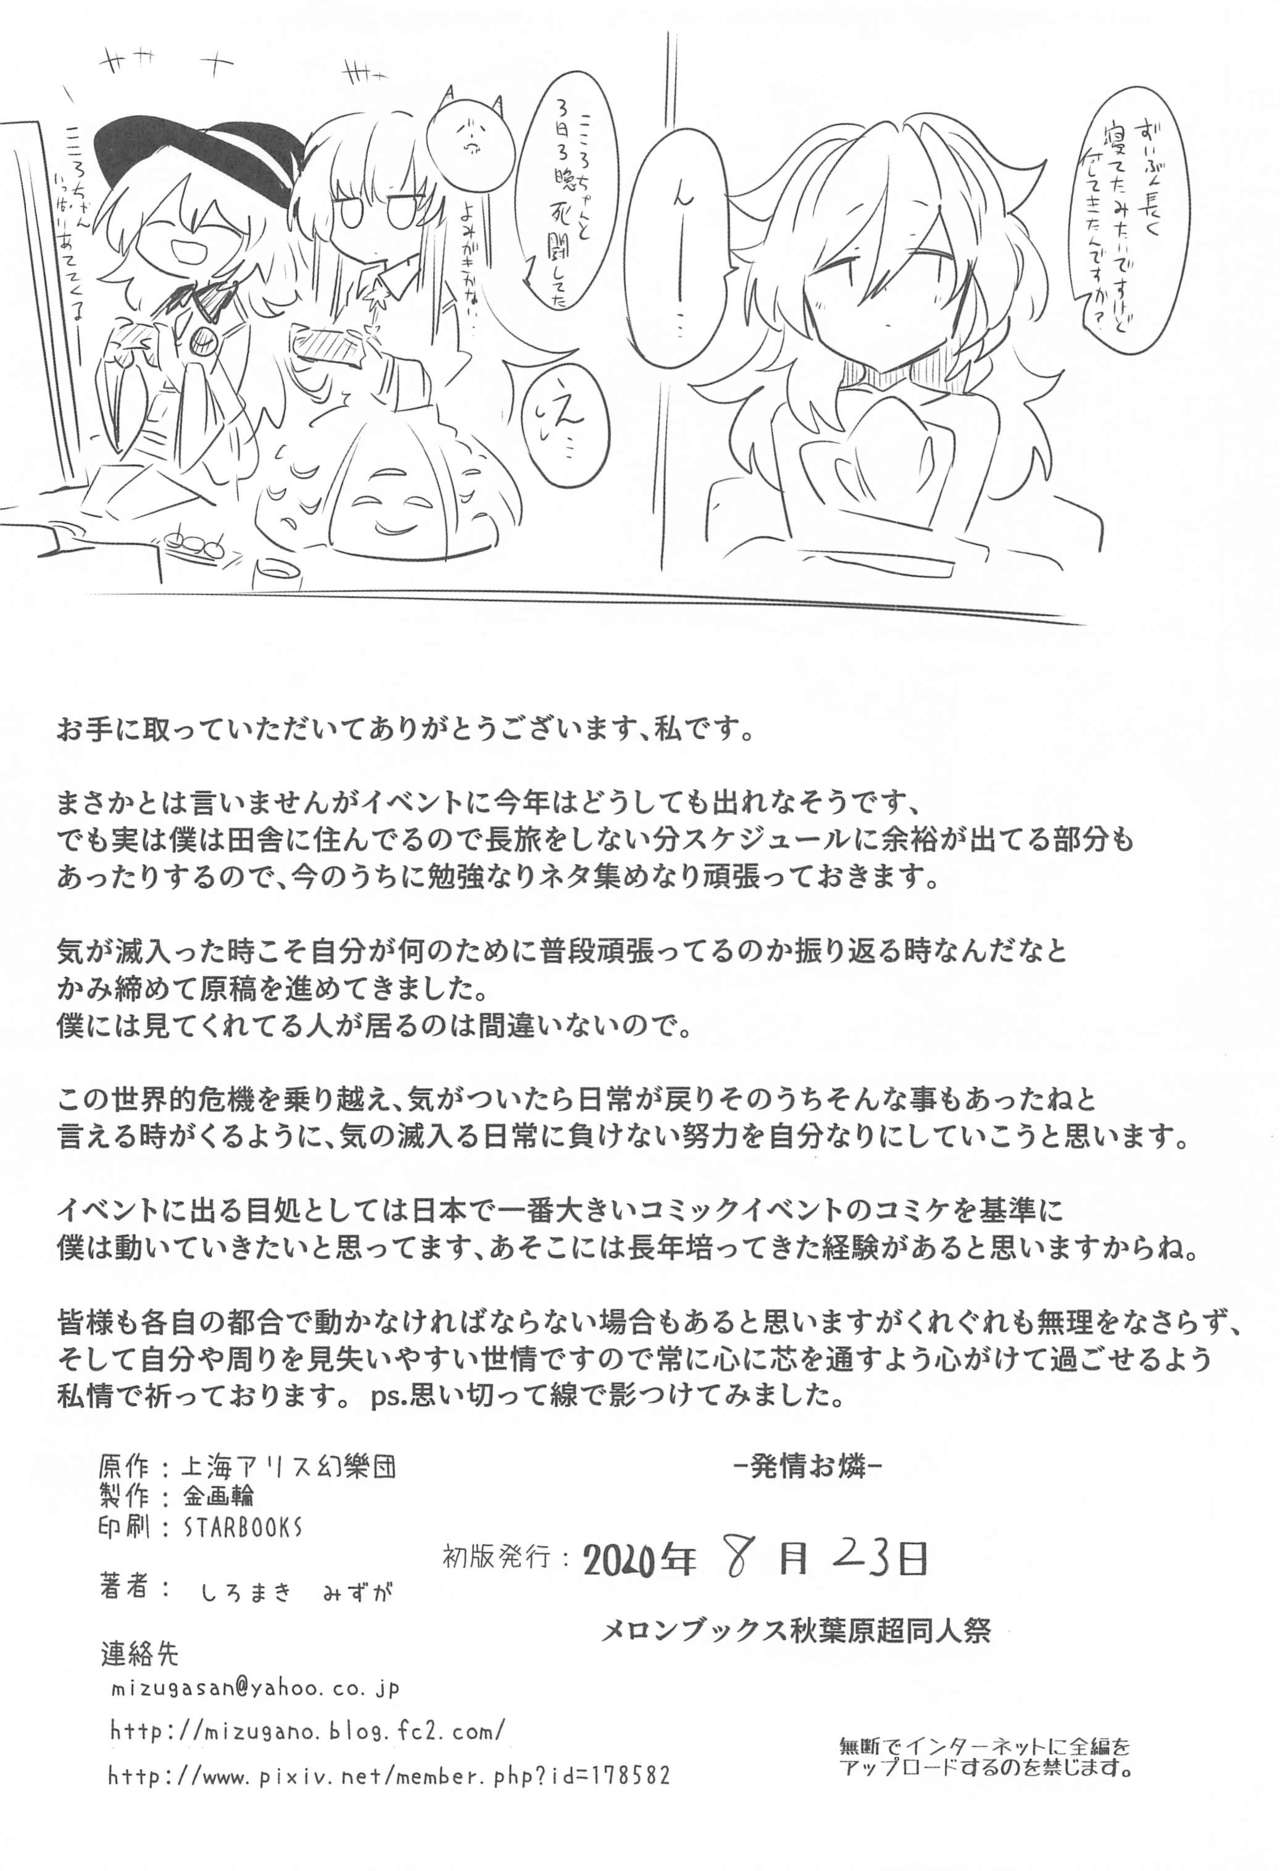 ずいぶん長く
寝てたみたいですけど
何してきたんですか?
んー…
こころちゃんと
3日3晩
死闘してた
え…
よみがきかない…
こころちゃん
いっぱいあててくるー
お手に取っていただいてありがとうございます、私です。
まさかとは言いませんがイベントに今年はどうしても出れなそうです、
でも実は僕は田舎に住んでるので長旅をしない分スケジュールに余裕が出てる部分も
あったりするので、今のうちに勉強なりネタ集めなり頑張っておきます。
気が滅入った時こそ自分が何のために普段頑張ってるのか振り返る時なんだなと
かみ締めて原稿を進めてきました。
僕には見てくれてる人が居るのは間違いないので。
この世界的危機を乗り越え、気がついたら日常が戻りそのうちそんな事もあったねと
言える時がくるように、気の滅入る日常に負けない努力を自分なりにしていこうと思います。
イベントに出る目処としては日本で一番大きいコミックイベントのコミケを基準に
僕は動いていきたいと思ってます、あそこには長年培ってきた経験があると思いますからね。
皆様も各自の都合で動かなければならない場合もあると思いますがくれぐれも無理をなさらず、
そして自分や周りを見失いやすい世情ですので常に心に芯を通すよう心がけて過ごせるよう
私情で祈っております。 ps.思い切って線で影つけてみました。
原作:上海アリス幻樂団
製作:金画輪
印刷:STARBOOKS
著者: しろまき みずが
連絡先
mizugasan@yahoo.co.jp
http://mizugano.blog.fc2.com/
http://www.pixiv.net/member.php?id=178582
-発情お燐-
初版発行:2020年 8月 23日
メロンブックス秋葉原超同人祭
無断でインターネットに全編を
アップロードするのを禁じます。